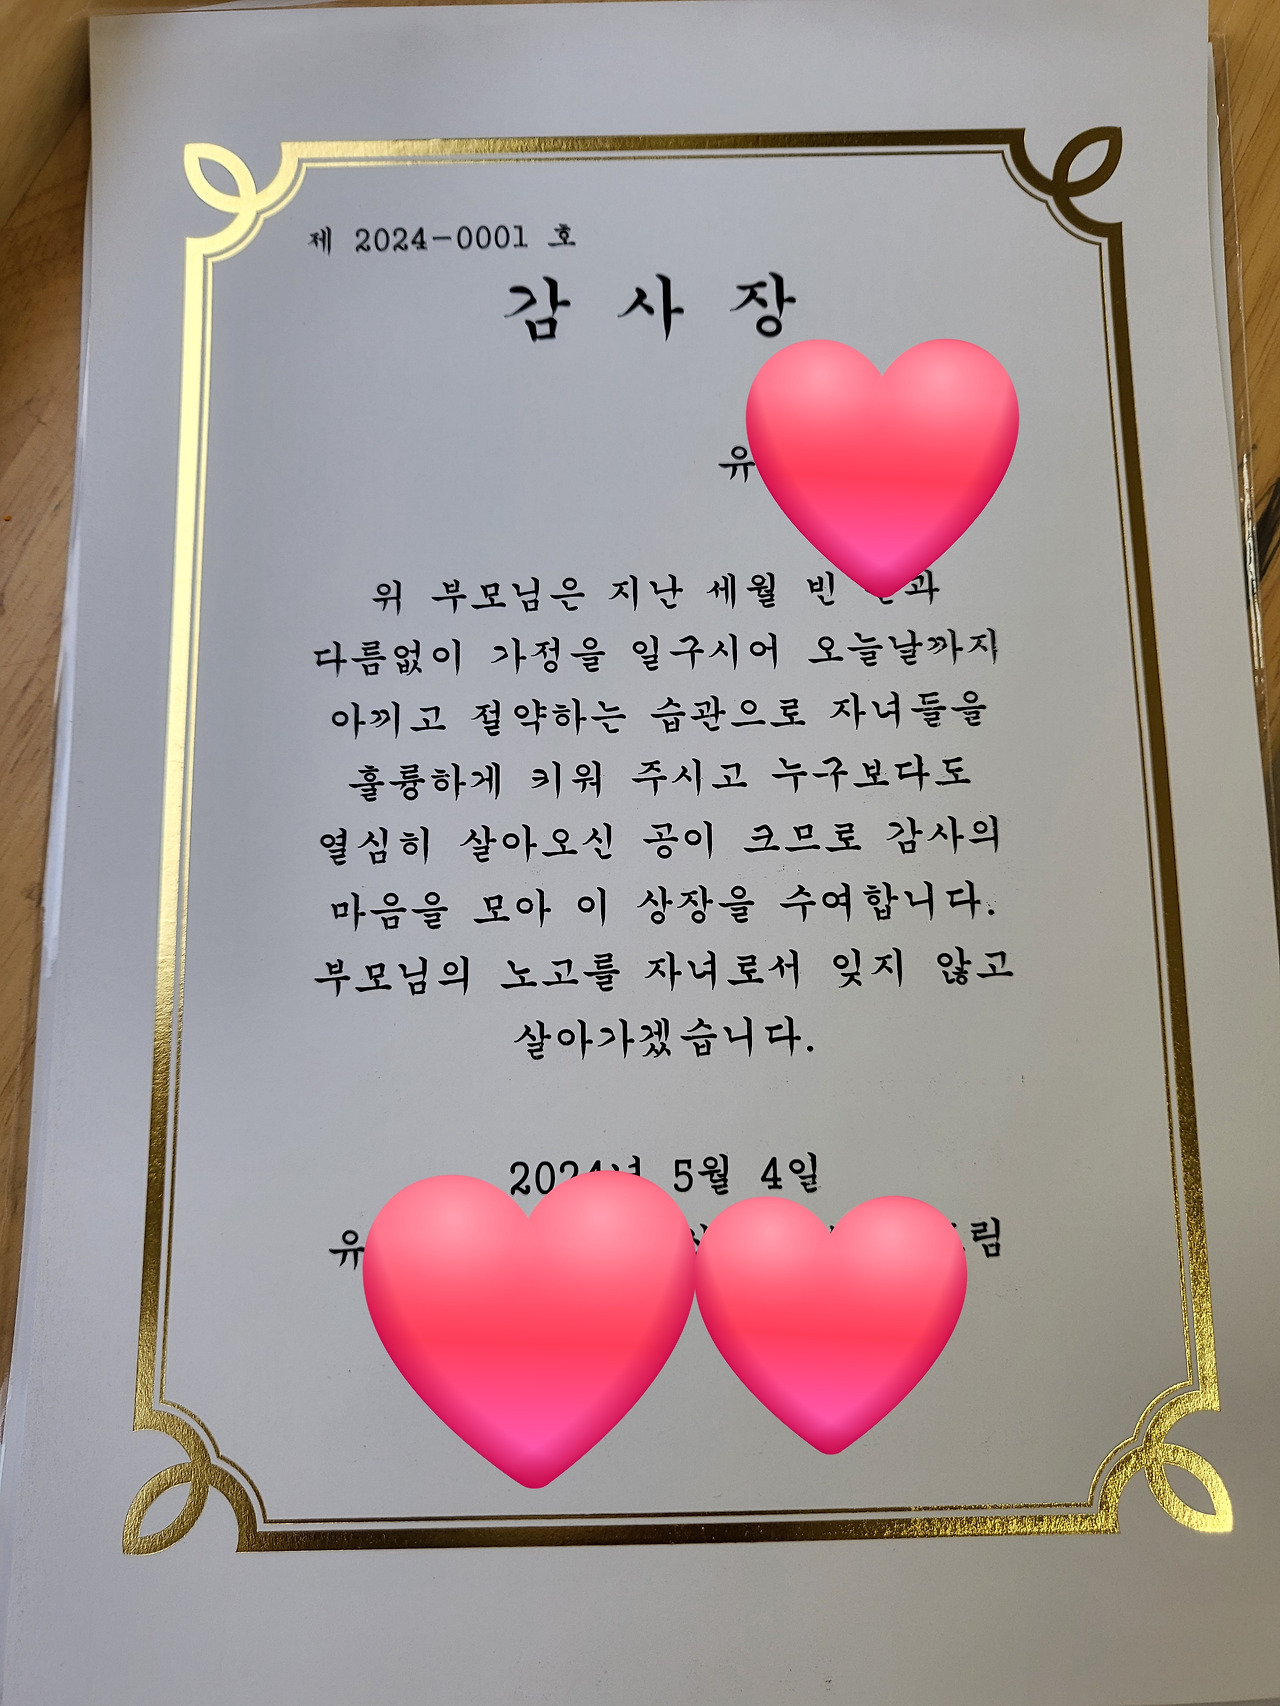 제 2024-0001 호
감 사 장
유
위 부모님은 지난 세월 빈
다름없이 가정을 일구시어 오늘날까지
아끼고 절약하는 습관으로 자녀들을
훌륭하게 키워 주시고 누구보다도
열심히 살아오신 공이 크므로 감사의
마음을 모아 이 상장을 수여합니다.
부모님의 노고를 자녀로서 잊지 않고
살아가겠습니다.
2024년 5월 4일
유